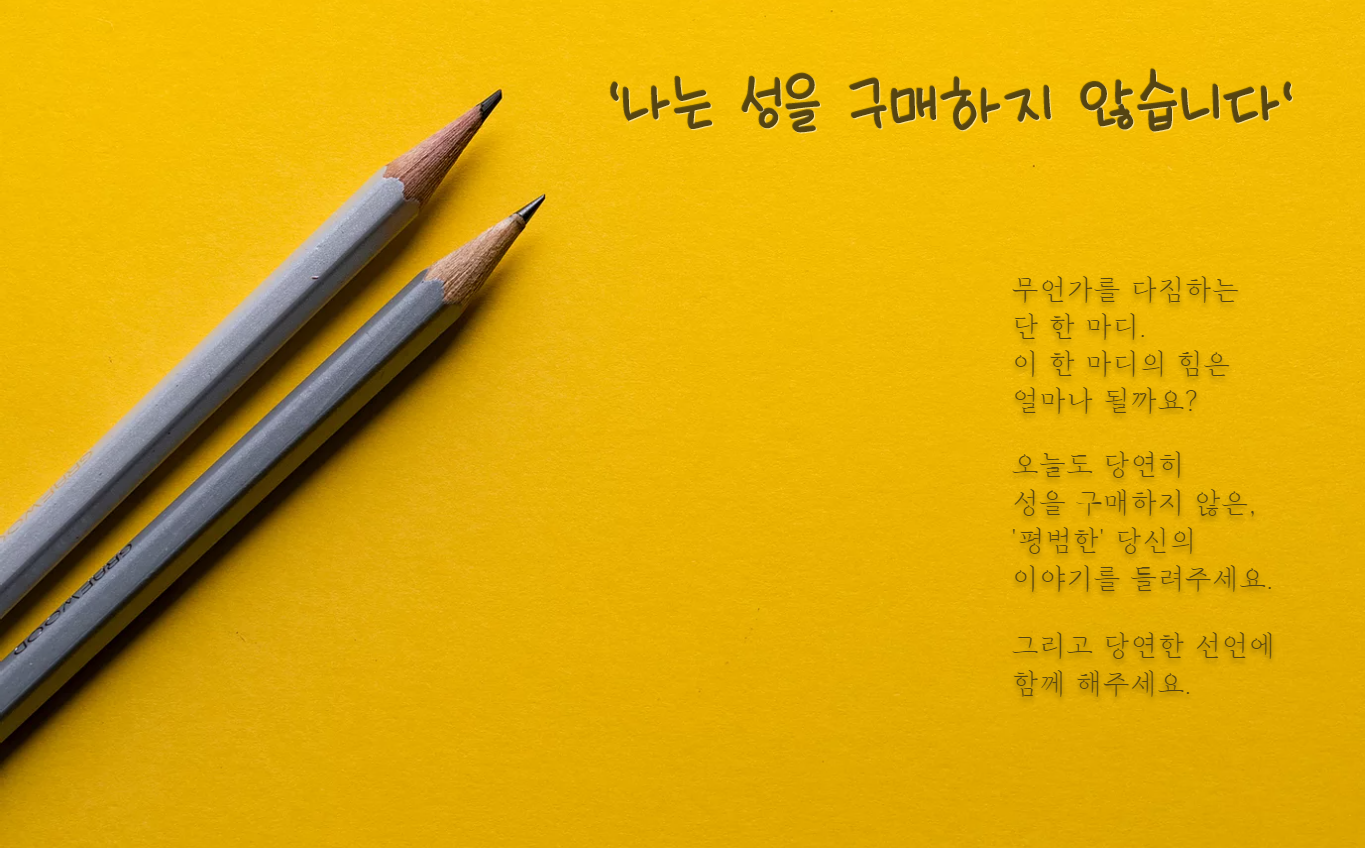 '나는 성을 구매하지 않습니다'
무언가를 다짐하는
단 한 마디.
이 한 마디의 힘은
얼마나 될까요?
오늘도 당연히
성을 구매하지 않은,
'평범한' 당신의
이야기를 들려주세요.
그리고 당연한 선언에
함께 해주세요.